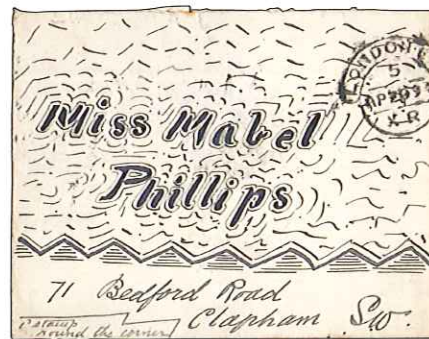 LONDON
5
AP 20 9
X R
Miss Mabel
Phillips
71 Bedford Road
Clapham SW.
stamp
round the corner